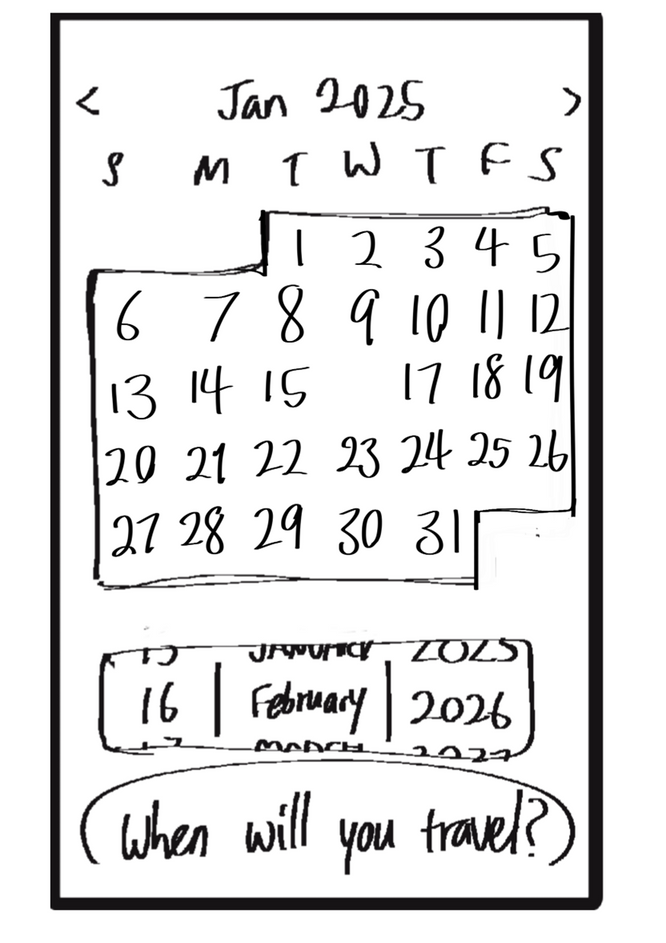 < Jan 2025 >
S M T W T F S
1 2 3 4 5
6 7 8 9 10 11 12
13 14 15 17 18 19
20 21 22 23 24 25 26
27 28 29 30 31
15 JANUARY 2025
16 | February | 2026
17 MARCH 2027
When will you travel?